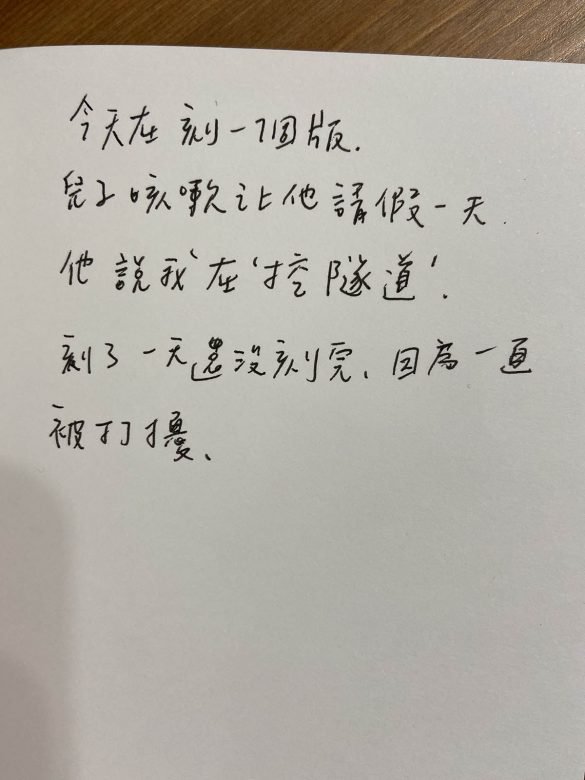 今天在刻一個版.
兒子咳嗽让他請假一天.
他說我在'挖隧道'.
刻了一天還没刻完、因為一直
被打擾、